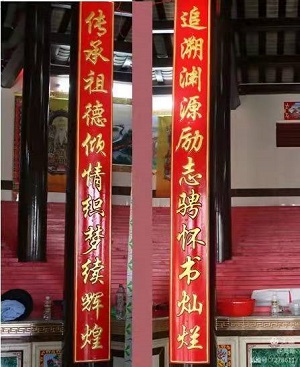 追溯渊源励志骋怀书灿烂
传承祖德倾情织梦续辉煌